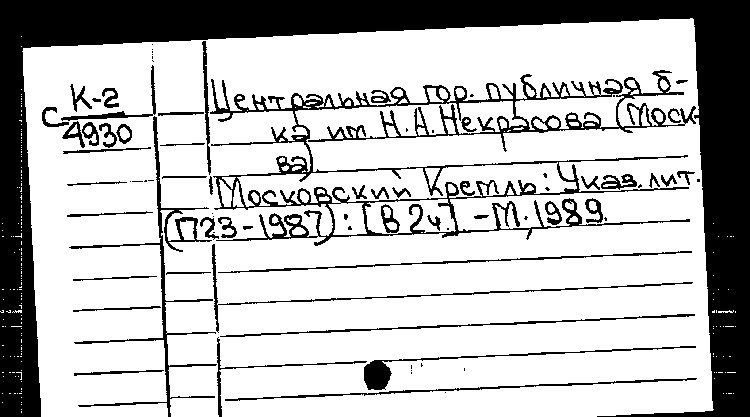 К-2
С
4930
Центральная гор. публичная б-
ка им. Н.А.Некрасова (Моск-
ва)
Московский Кремль: Указ. лит.
(1723-1987): [В 2ч.] -М., 1989.